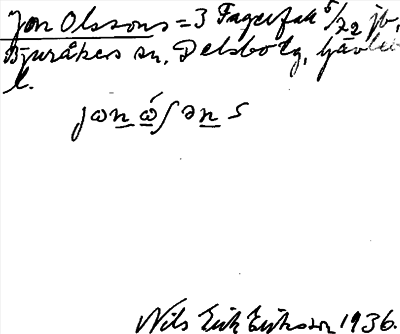 Jon Olssons = 3 Fagerfak 5/72 jb,
Bjuråkers sn, Delsbo tg, Gävleb
l.
jωn ώʃəns
Nils Erik Eriksson 1936.